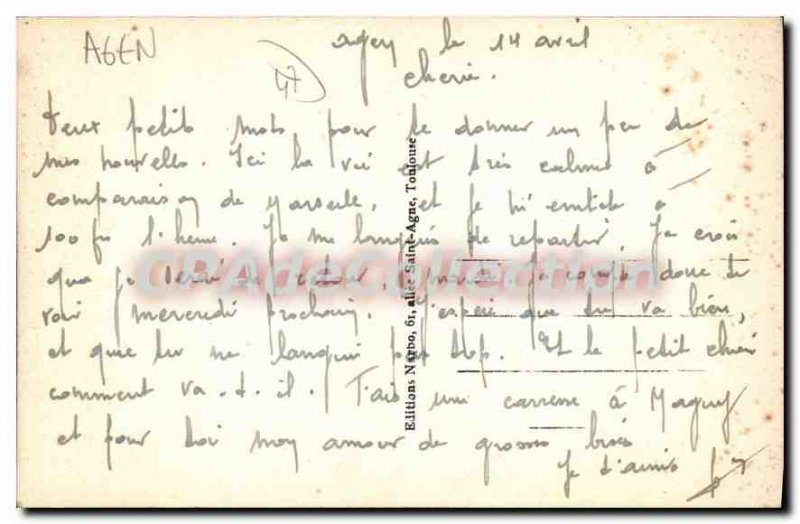 AGEN
47
agen le 14 avril
cherie.
deux petits mots pour te donner un peu de
mes nouvelles. Ici la vie est très calme à
comparaison de Marseille, et je m'emb à
100 fr l'heure. Je me languis de repartir. Je crois
que je serai de retour, mardi, je compte donc te
voir mercredi prochain. J'espère que tu va bien,
et que tu ne languis pas trop. Et le petit chien
comment va-t-il. Fais une caresse à Maguy
et pour toi mon amour de grosses bises
Je t'aime
Editions Narbo, 61, allée Saint-Agne, Toulouse
CPADeCollection